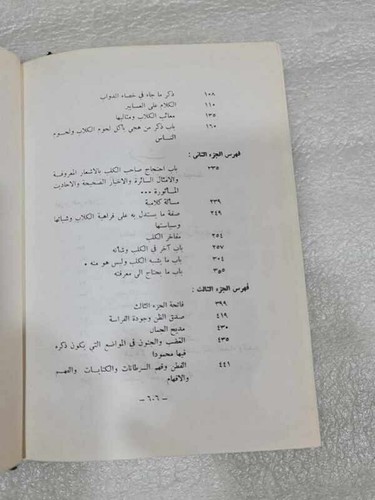 ذكر ما جاء في خصاء الدواب ١٠٨
الكلام على الصابير ١١٠
معائب الكلاب ومثالبها ١٣٥
باب ذكر من هجي بأكل لحوم الكلاب ولحوم ١٦٠
النساس
فهرس الجزء الثاني :
باب احتجاج صاحب الكلب بالاشعار المعروفة ٢٣٥
والامثال السائرة والاخبار الصحيحة والاحاديث
المأثورة ...
مسألة كلامية ٢٣٩
صفة ما يستدل به على فراهية الكلاب وشياتها ٢٤٩
وسياستها
مفاخر الكلب ٢٥٤
باب آخر في الكلب وشأنه ٢٥٧
باب ما يشبه الكلب وليس هو منه . ٣٠٤
باب ما يحتاج الى معرفته ٣٥٥
فهرس الجزء الثالث :
فاتحة الجزء الثالث ٣٩٩
صدق الظن وجودة الفراسة ٤١٩
مديح الحسان ٤٣٠
الغضب والجنون في المواضع التي يكون ذكره ٤٣٥
فيها محمودا
الفطن وفهم السرطانات والكنايات والفهم ٤٤١
والافهام
- ٦٠٦ -